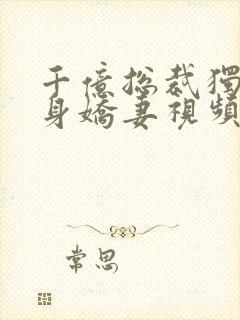 千億總裁獨
身嬌妻視頻
常思